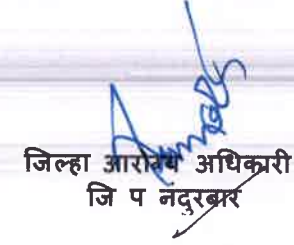 जिल्हा आरोग्य अधिकारी
जि प नदुरबार